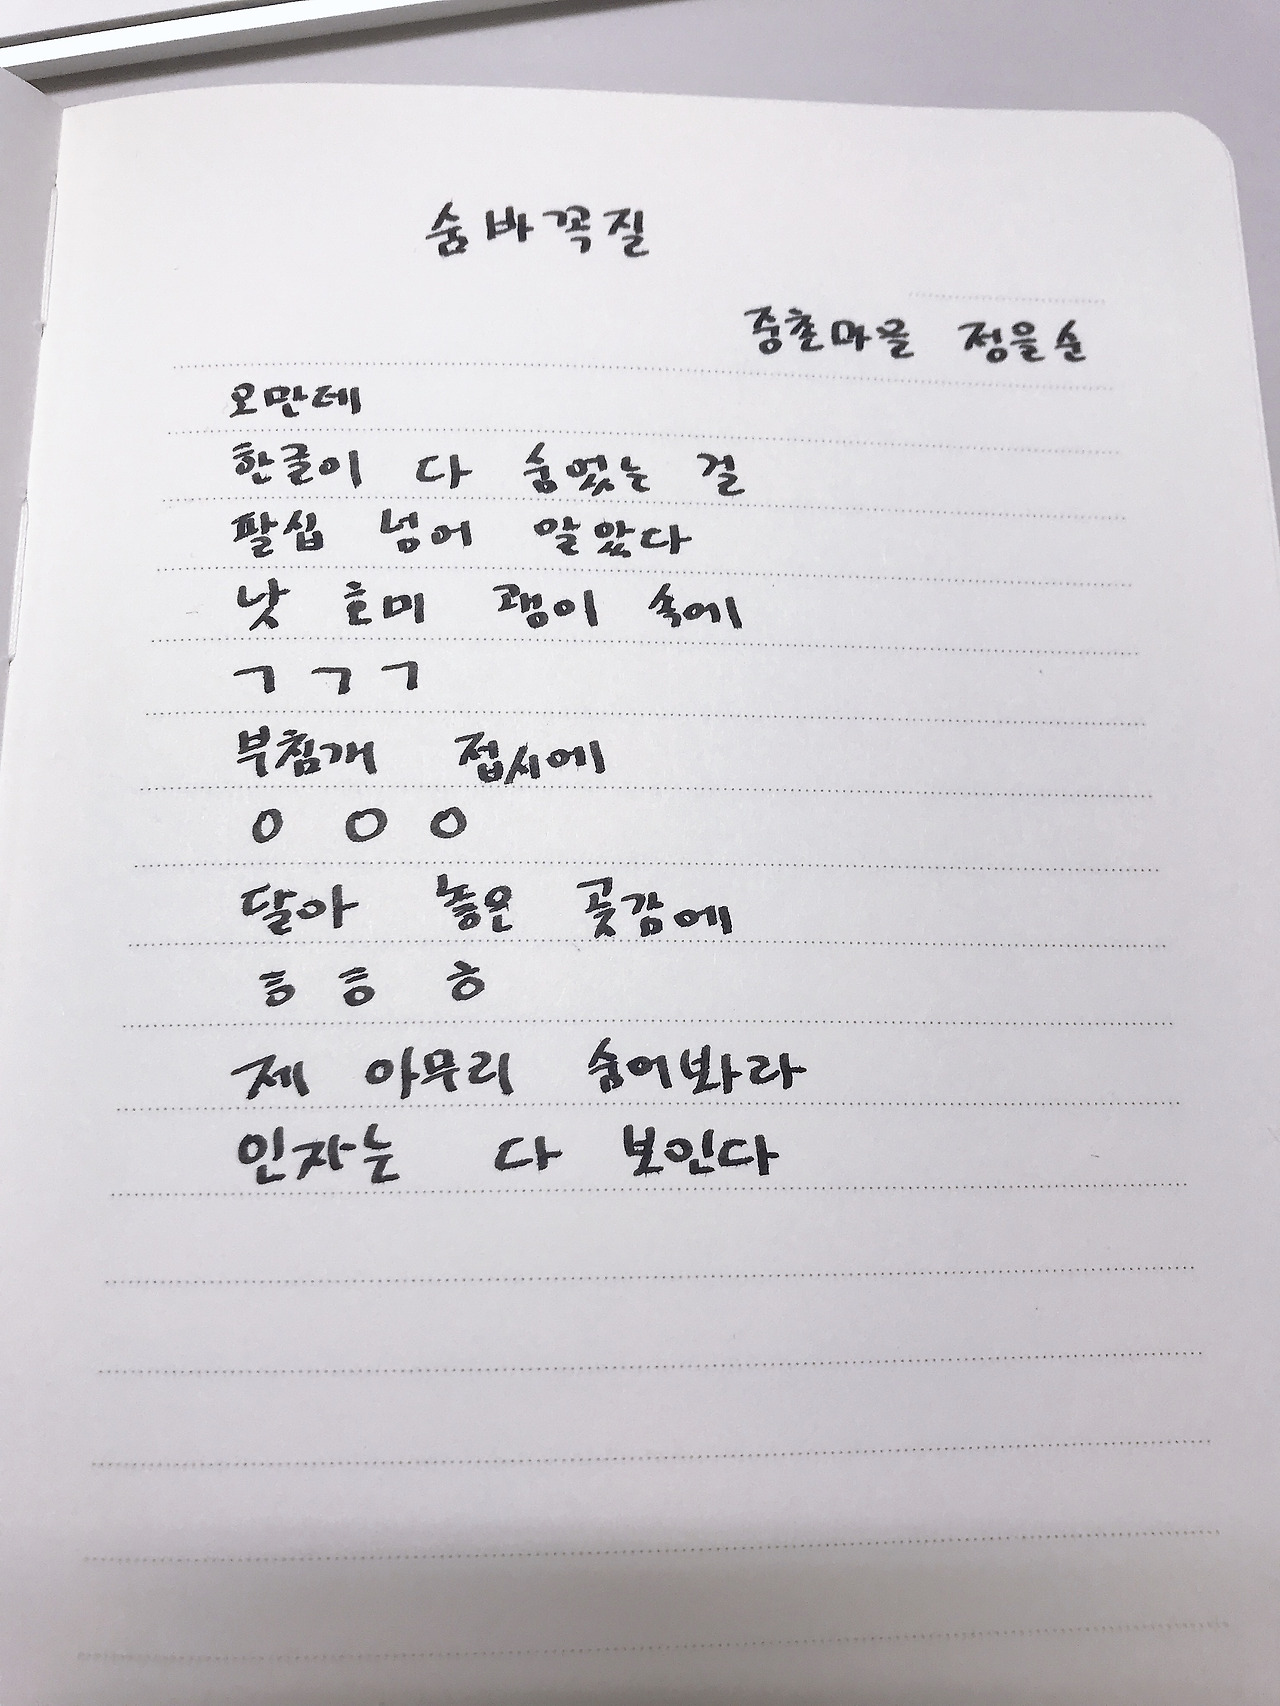 숨바꼭질
중촌마을 정을순
오만데
한글이 다 숨었는 걸
팔십 넘어 알았다
낫 호미 괭이 속에
ㄱ ㄱ ㄱ
부침개 접시에
ㅇ ㅇ ㅇ
달아 놓은 곶감에
ㅎ ㅎ ㅎ
제 아무리 숨어봐라
인자는 다 보인다